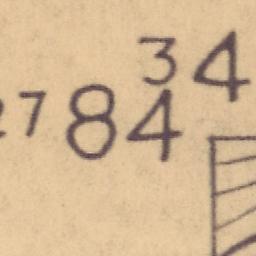 34
27 84